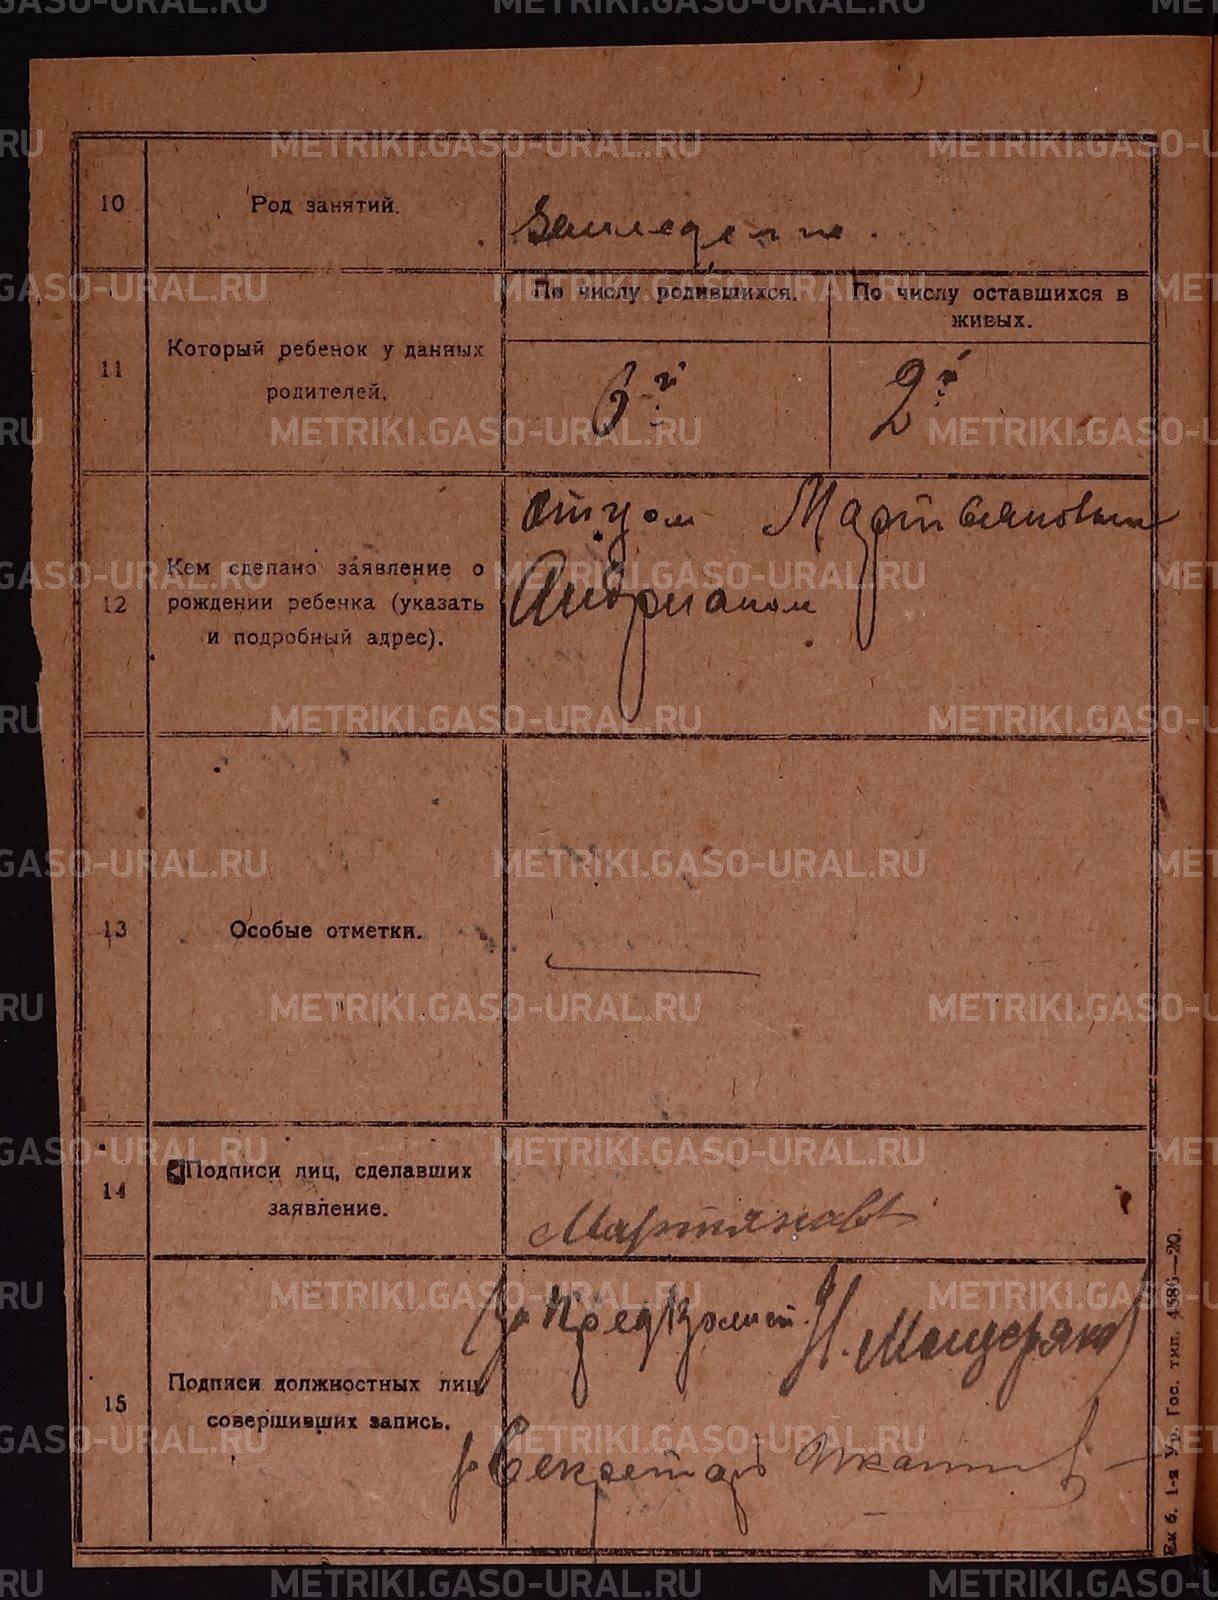 10
Род занятий.
Земледелие.
11
Который ребенок у данных
родителей.
По числу родившихся.
6й
По числу оставшихся в
живых.
2й
12
Кем сделано заявление о
рождении ребенка (указать
и подробный адрес).
отцом Мартьяновым
Андрианом
13
Особые отметки.
14
Подписи лиц, сделавших
заявление.
Мартянов
15
Подписи должностных лиц
совершивших запись.
За Пред Волист. Н. Мещеряков
за Секретарь
Ек б. 1-я Ур. Гос. тип. 4586—20.
METRIKI.GASO-URAL.RU